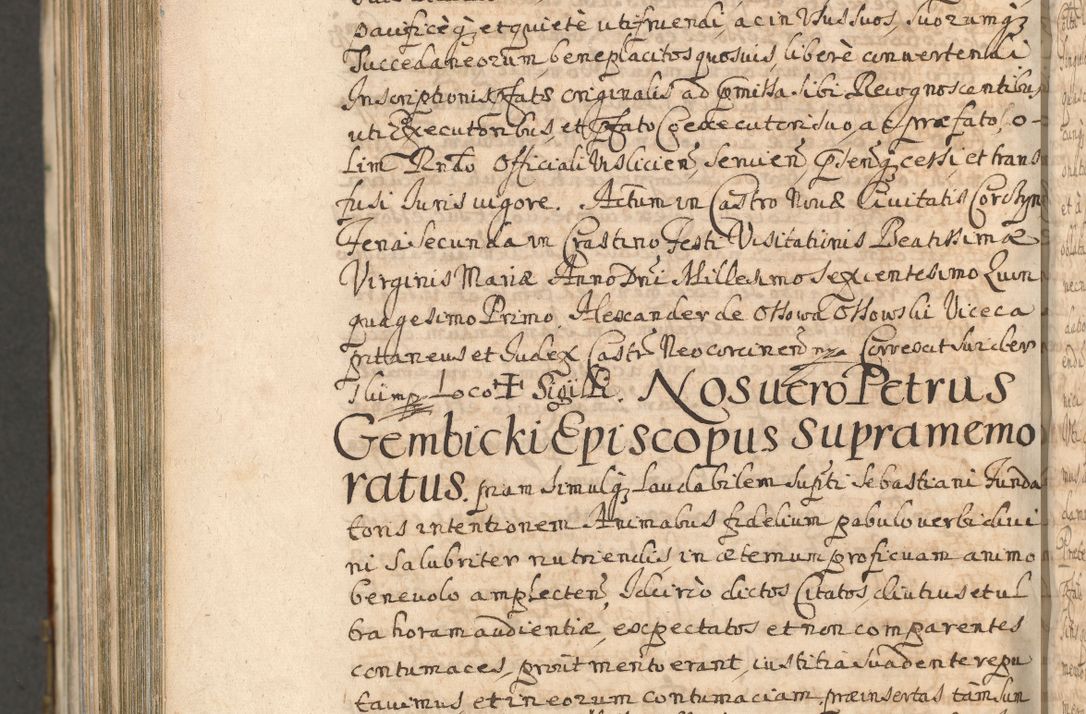 pacificeq, et quietè utifruendi, ac in Usus suos, suorumq
Succedaneorum, beneplacitos quosuis, liberè conuertendi
Inscriptionis pfatæ originalis ad pmissa sibi Recognoscentibus
uti Executoribus, et pfato Coexecutori suo, ac præfato, o-
lim Rndo Officiali Uisliciens, seruien, psenq cessi, et trans
fusi Iuris uigore. Actum in Castro Nouæ Ciuitatis Corczyn
Feria secunda in Crastino Festi Visitationis Beatissimæ
Virginis Mariæ Anno Dni Millesimo sexcentesimo Quin
quagesimo Primo, Alexander de Ossowa Ossowski Viceca
pitaneus et Iudex Castr Neocorcinen mp Correxit Surcber
Slimp Loco ✠ Sigilli. Nos uero Petrus
Gembicki Episcopus supramemo
ratus. piam simulq laudabilem supti Sebastiani Funda
toris intentionem Animabus fidelium pabulo uerbi diui
ni salubriter nutriendis in æternum proficuam animo
beneuolo amplecten, Idcirco dictos Citatos, diutius et ul
tra horam audientiæ, expectatos et non comparentes
contumaces, prout merito erant, iustitia suadente repu
tauimus et in eorum contumaciam præinsertas tam sun